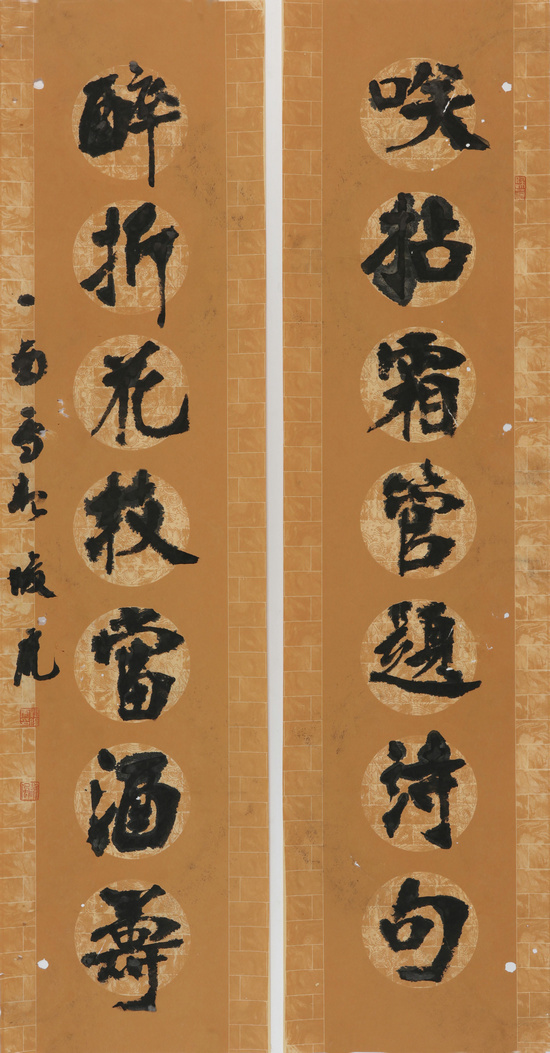 咲拈霜管題詩句
醉折花枝當酒籌